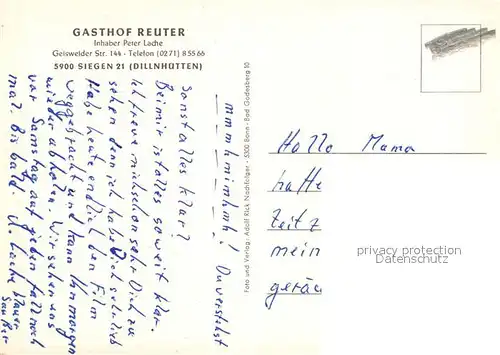 GASTHOF REUTER
Inhaber Peter Lache
Geisweider Str. 144 - Telefon (0271) 8 55 66
5900 SIEGEN 21 (DILLNHÜTTEN)
mmmhmimhmh! Du verstehst
Sonst alles klar?
Bei mir ist alles soweit klar.
Ich freue mich schon sehr Dich zu
sehen denn ich habe Dich sehr lieb
Habe heute endlich den Film
weggebracht und kann ihn morgen
wieder abholen. Wir sehen uns
vor Samstag auf jeden Fall noch
mal. Bis bald.
Foto und Verlag: Adolf Rick Nachfolger - 5300 Bonn - Bad Godesberg 10
Hallo Mama
hatte
Zeit z
mein
geräu
privacy protection
AnsichtskartenCenter.de